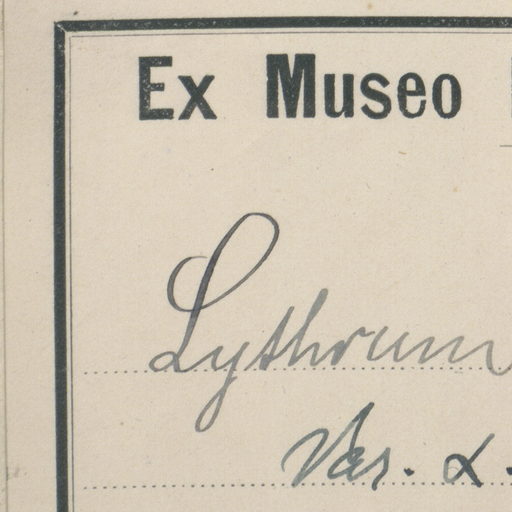 Ex Museo
Lythrum
Var. α.